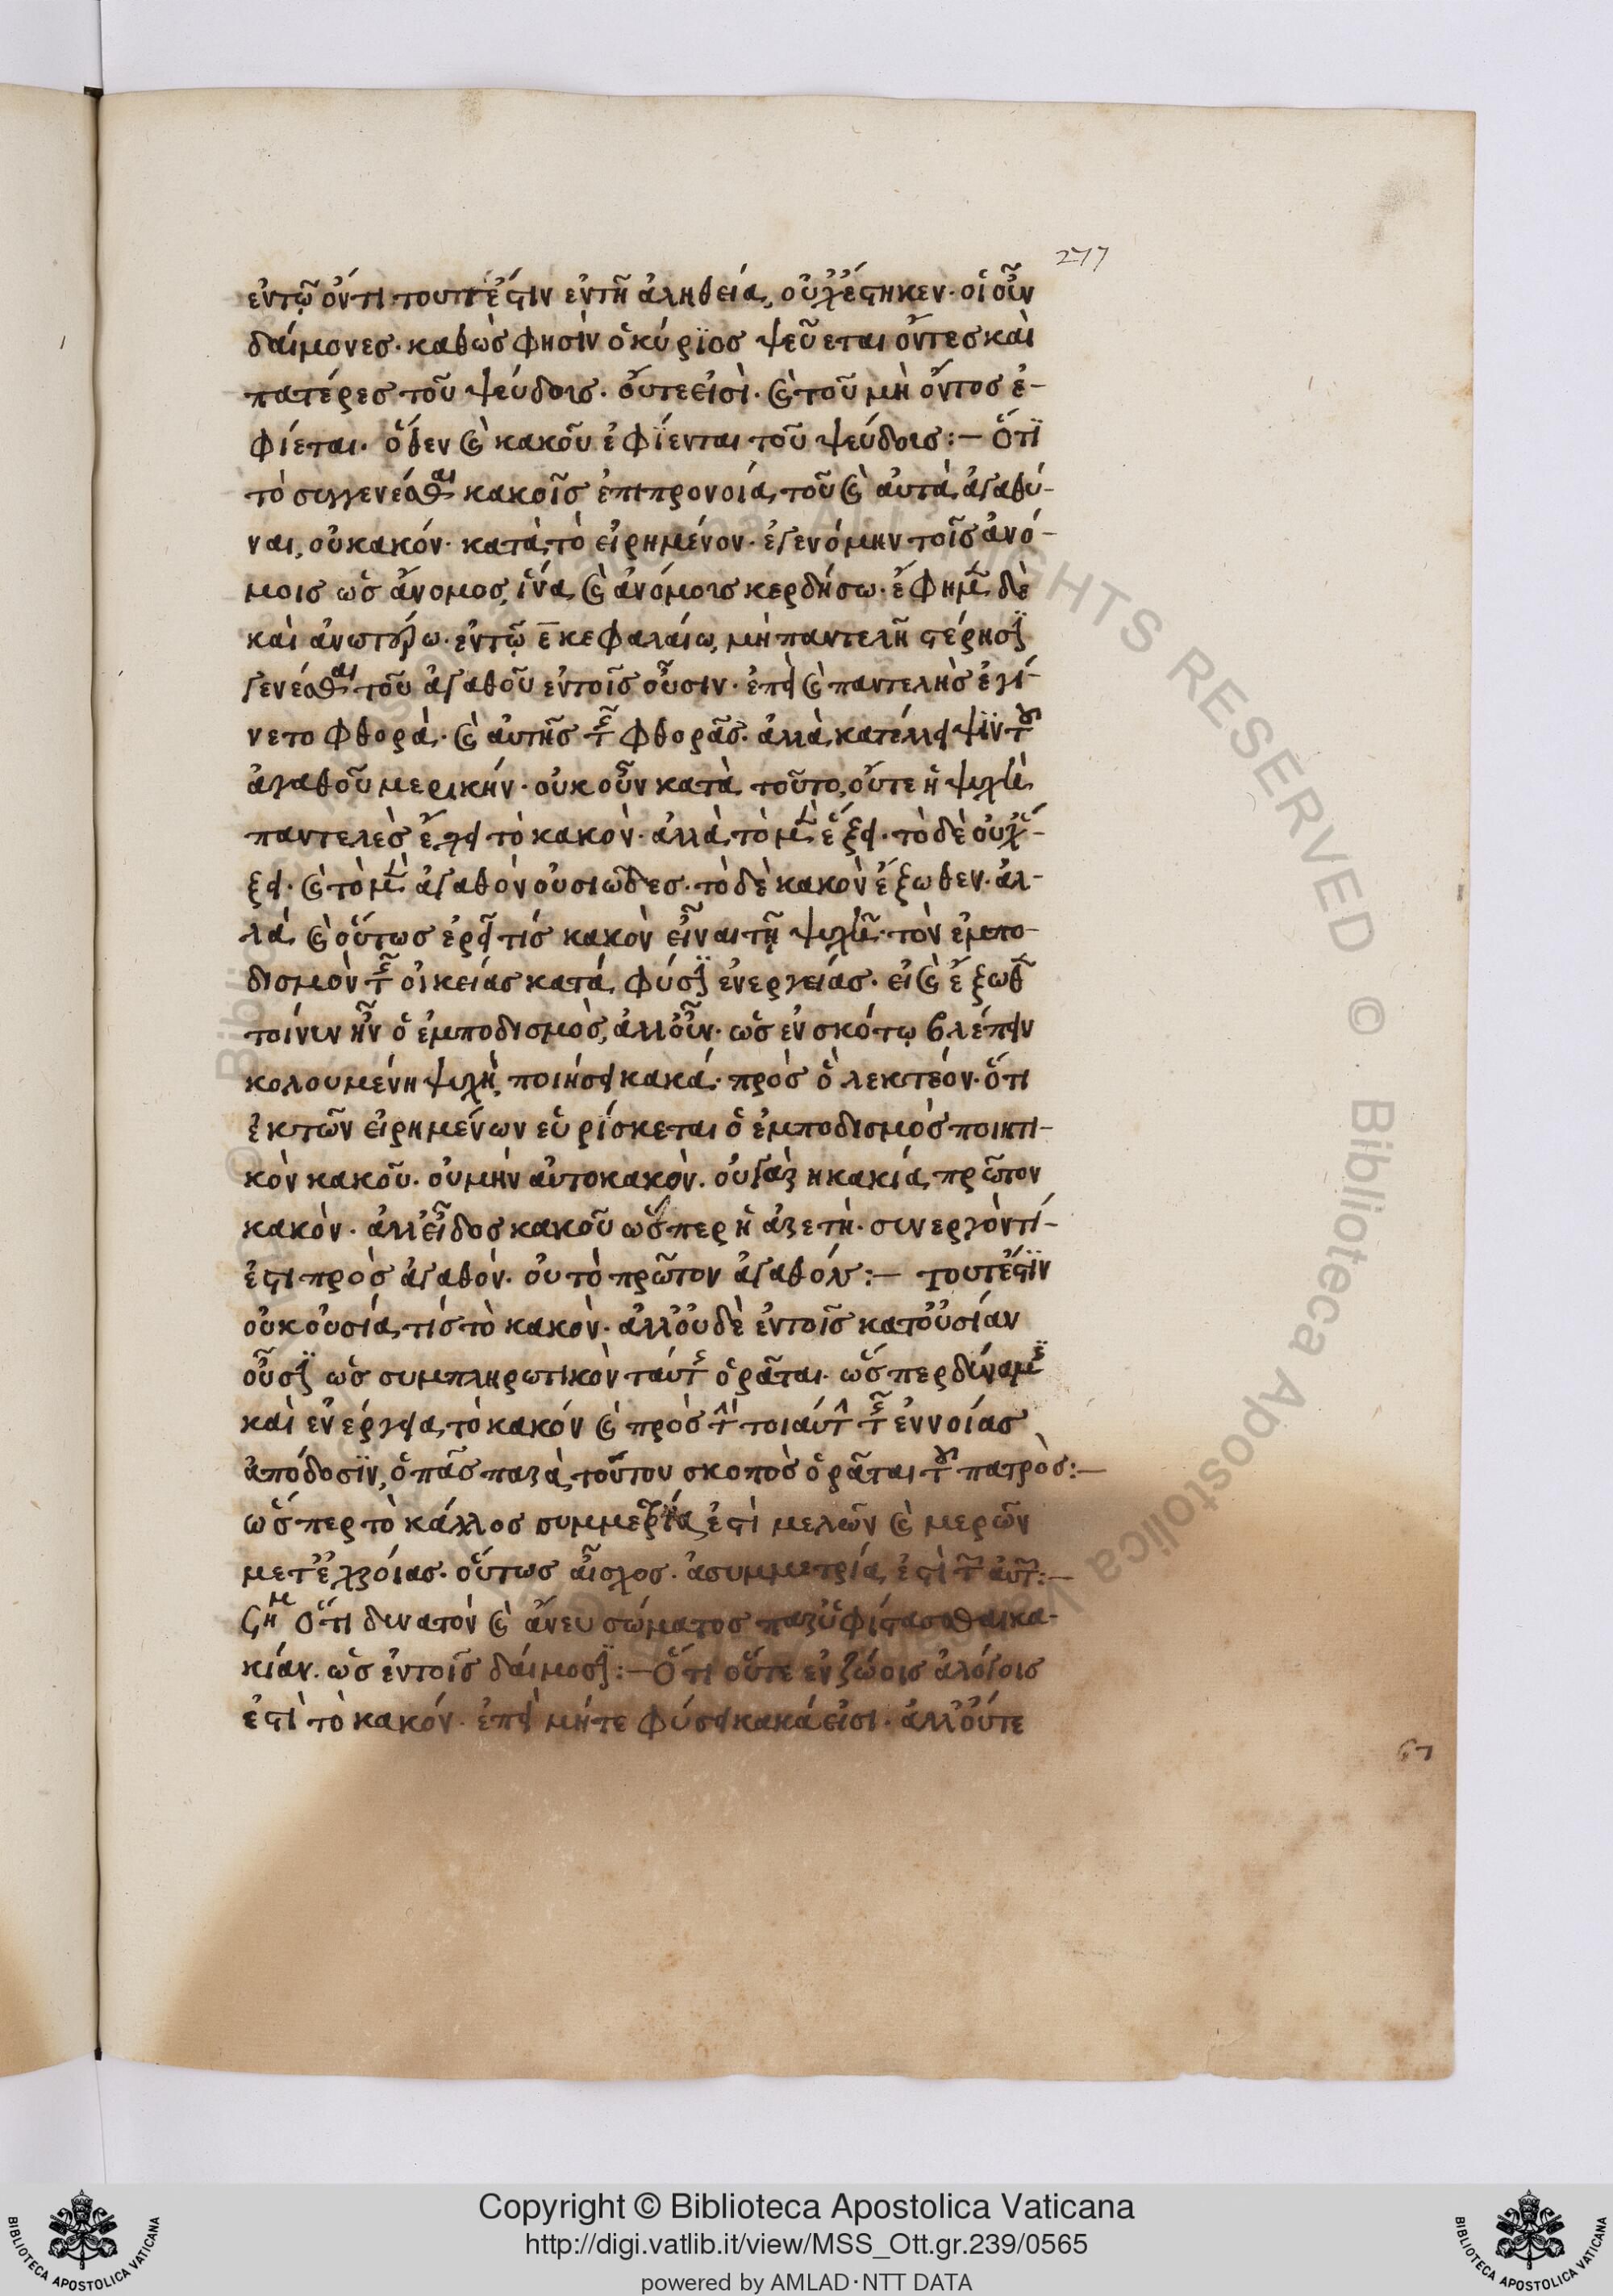 277
ἐν τῷ ὄντι· τουτέστιν ἐν τῇ ἀληθεία, οὐχ ἕστηκεν· οἱ οὖν
δαίμονες· καθὼς φησὶν ὁ κύριος ψεῦεται ὄντες καὶ
πατέρες τοῦ ψεύδους· οὔτε εἰσὶ· καὶ τοῦ μὴ ὄντος ἐ-
φίεται· ὅθεν καὶ κακοῦ ἐφίενται τοῦ ψεύδους:— Ὅτι
τὸ συγγενέσθαι κακοῖς ἐπὶ προνοία, τοῦ καὶ αὐτὰ ἀγαθύ-
ναι, οὐ κακόν· κατὰ τὸ εἰρημένον· ἐγενόμην τοῖς ἀνό-
μοις ὡς ἄνομος, ἵνα καὶ ἀνόμους κερδήσω· ἔφημεν δὲ
καὶ ἀνωτέρω· ἐν τῷ ε̄ κεφαλαίω, μὴ παντελῆ στέρησιν
γενέσθαι τοῦ ἀγαθοῦ ἐν τοῖς οὖσιν· ἐπεὶ καὶ παντελὴς ἐγί-
νετο φθορὰ· καὶ αὐτῆς τῆς φθορᾶς· ἀλλὰ κατέλλειψιν τοῦ
ἀγαθοῦ μερικήν· οὐκοῦν κατὰ τοῦτο, οὔτε ἡ ψυχὴ
παντελὲς ἔχει τὸ κακὸν· ἀλλὰ τὸ μὲν ἕξει· τὸ δὲ οὐχ ἕ-
ξει· καὶ τὸ μὲν ἀγαθὸν οὐσιῶδες· τὸ δὲ κακὸν ἔξωθεν· ἀλ-
λὰ καὶ οὕτως ἐρεῖ τίς κακὸν εἶναι τῇ ψυχῇ· τὸν ἐμπο-
δισμὸν τῆς οἰκείας κατὰ φύσιν ἐνεργείας· εἰ καὶ ἔξωθεν
τοίνυν ἦν ὁ ἐμποδισμὸς, ἀλλ' οὖν· ὡς ἐν σκότῳ βλέπειν
κολουμένη ψυχὴ, ποιήσει κακά· πρὸς ὃ λεκτέον· ὅτι
ἐκ τῶν εἰρημένων εὑρίσκεται ὁ ἐμποδισμὸς ποιητι-
κὸν κακοῦ· οὐ μὴν αὐτοκακὸν· οὐ γὰρ ἡ κακία, πρῶτον
κακὸν· ἀλλ' εἶδος κακοῦ ὥσπερ ἡ ἀρετὴ· συνεργὸν τί-
ἐστι πρὸς ἀγαθόν· οὐ τὸ πρῶτον ἀγαθόν:— τουτέστιν
οὐκ οὐσία, τίς τὸ κακὸν· ἀλλ' οὐδὲ ἐν τοῖς κατ' οὐσίαν
οὖσιν ὡς συμπληρωτικὸν ταύτης ὁρᾶται· ὥσπερ δύναμις
καὶ ἐνέργεια, τὸ κακόν καὶ πρὸς τὴν τοιαύτην τῆς ἐννοίας
ἀπόδοσιν, ὁ πᾶς παρὰ τούτου σκοπὸς ὁρᾶται τοῦ πατρὸς:—
ὥσπερ τὸ κάλλος συμμετρία ἐστὶ μελῶν καὶ μερῶν
μετ' εὐχροίας· οὕτως αἶσχος· ἀσυμμετρία ἐστὶ τῶν αὐτῶν:—
Ση Ὅτι δυνατὸν καὶ ἄνευ σώματος παρυφίστασθαι κα-
κίαν· ὡς ἐν τοῖς δαίμοσιν:— Ὅτι οὔτε ἐν ζώοις ἀλόγοις
ἐστὶ τὸ κακόν· ἐπεὶ μήτε φύσει κακά εἰσι· ἀλλ' οὔτε
Copyright © Biblioteca Apostolica Vaticana
http://digi.vatlib.it/view/MSS_Ott.gr.239/0565
powered by AMLAD·NTT DATA